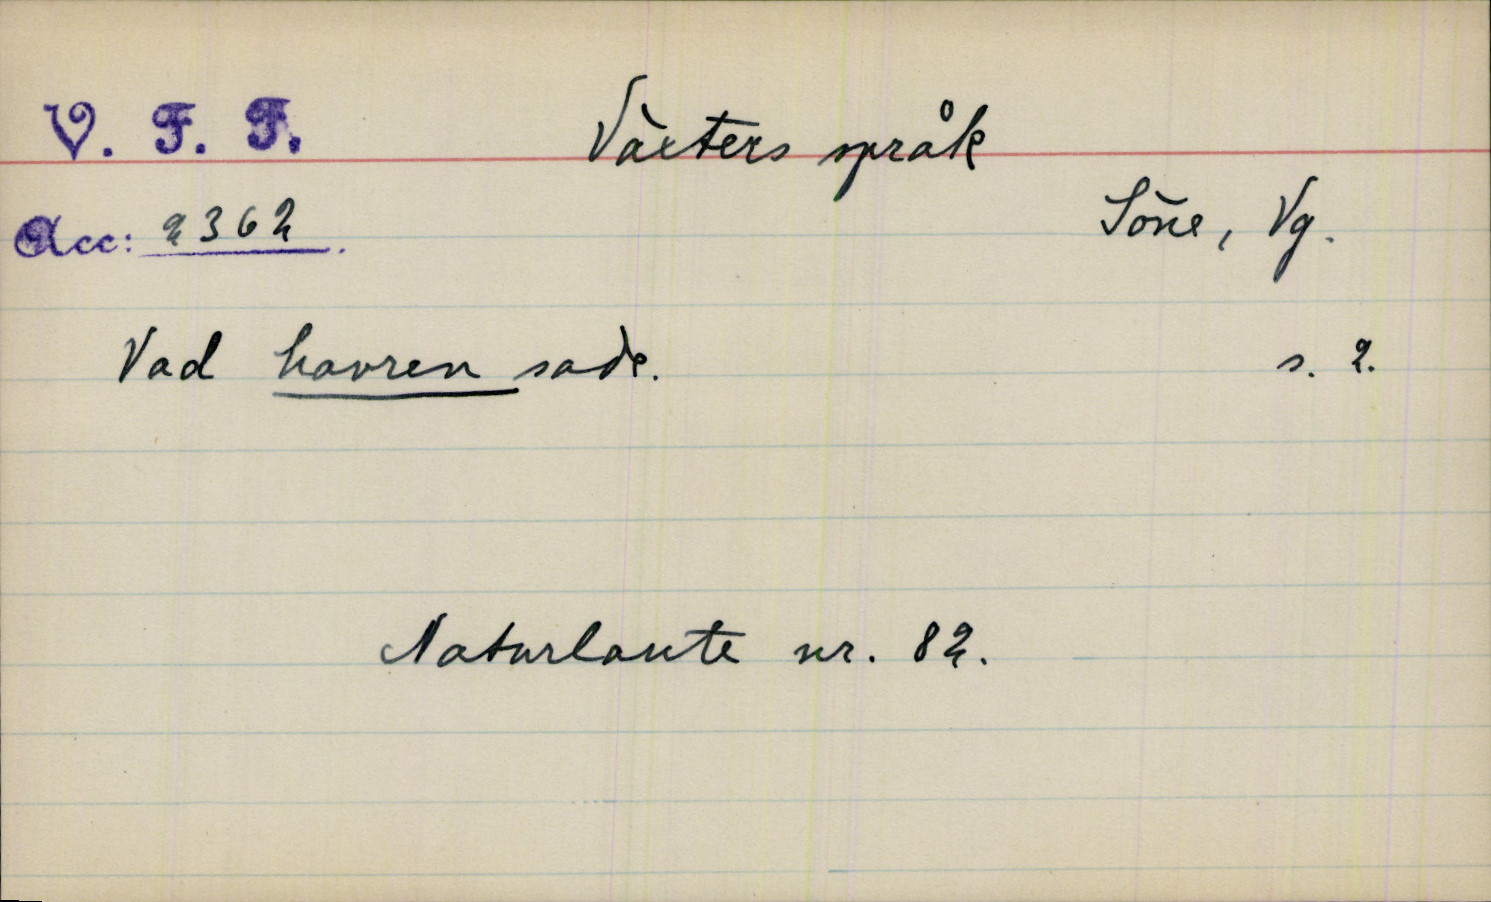 V. F. F. Växters språk
Acc: 2362. Söne, Vg.
Vad havren sade. s. 2.
Naturlaute nr. 82.